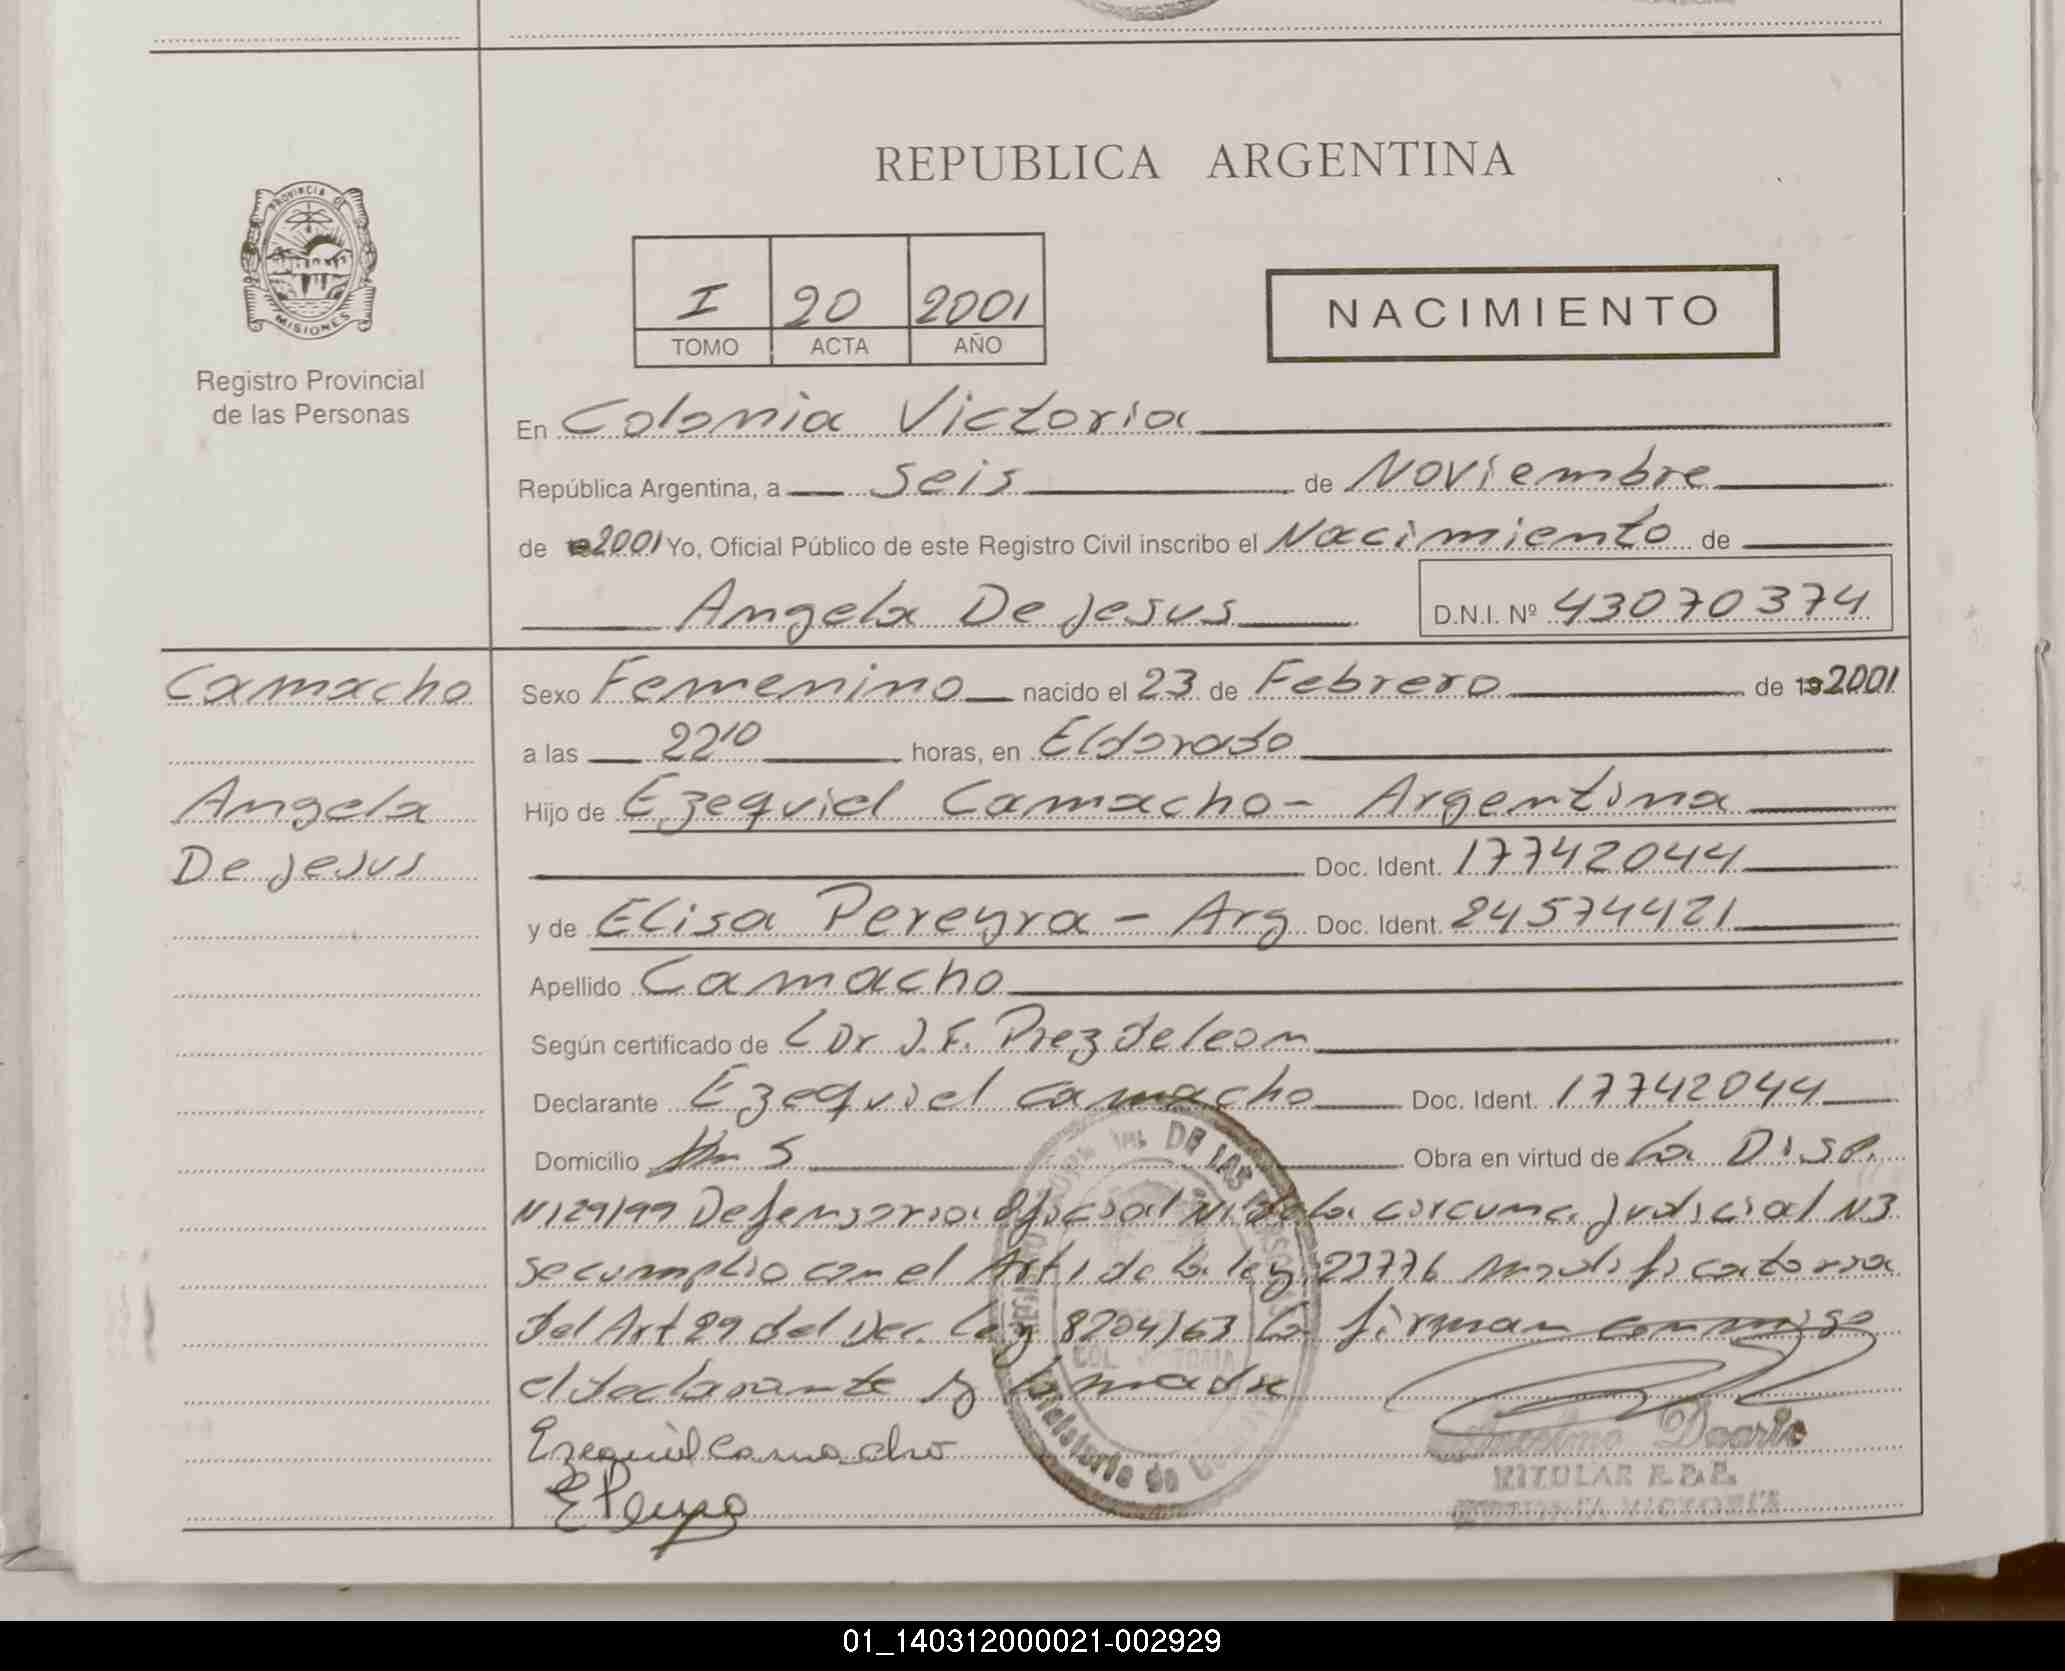 REPUBLICA ARGENTINA
PROVINCIA DE
MISIONES
Registro Provincial
de las Personas
I 20 2001
TOMO ACTA AÑO
NACIMIENTO
En Colonia Victoria
República Argentina, a seis de Noviembre
de 2001 Yo, Oficial Público de este Registro Civil inscribo el Nacimiento de
Angela De jesus D.N.I. Nº 43070374
Camacho
Angela
De jesus
Sexo Femenino nacido el 23 de Febrero de 192001
a las 22¹⁰ horas, en Eldorado
Hijo de Ezequiel Camacho - Argentina
Doc. Ident. 17742044
y de Elisa Pereyra - Arg Doc. Ident. 24574421
Apellido Camacho
Según certificado de Dr J.F. Prez deleon
Declarante Ezequiel camacho Doc. Ident. 17742044
Domicilio Km 5 Obra en virtud de La Disp.
N129/99 Defensoria Oficial N1 de la circuma judicial N3
secumplio con el Art 1 de la ley 23776 modificatoria
del Art 29 del Dec. Ley 8204/63 La firman conmigo
el declarante y la madre
Ezequiel Camacho
DE LAS PERSONAS
COL. VICTORIA
Ministerio de
TITULAR
COLONIA VICTORIA
01_140312000021-002929